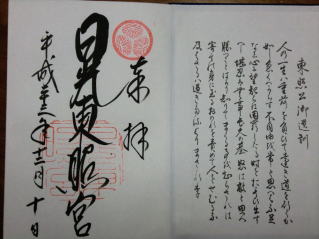 東照公御遺訓
人の一生は重荷を負て遠き道を行くが
如し急ぐべからず不自由を常と思へば不足
なし心に望起らば困窮したる時を思ひ出す
べし堪忍は無事長久の基怒は敵と思へ
勝つことばかり知りてまくることを知らざれば
害其の身に至る己を責めて人をせむるな
及ばざるは過ぎたるよりまされり
奉拝
日光東照宮
平成 年 月十日